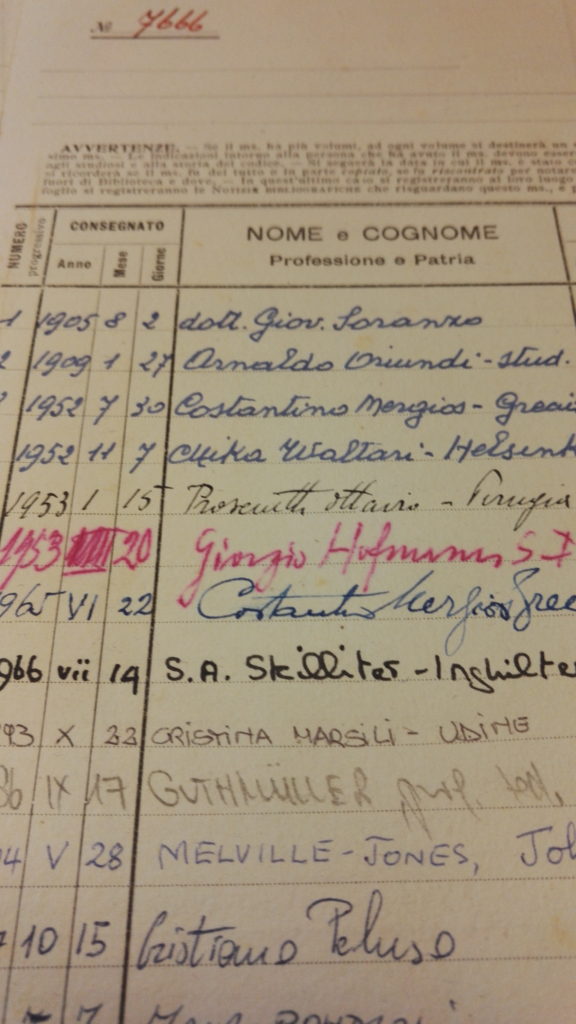 № 7666
AVVERTENZE. — Se il ms. ha più volumi, ad ogni volume si destinerà un
simo ms. — Le indicazioni intorno alla persona che ha avuto il ms. devono esser
agli studiosi e alla storia del codice. — Si segnerà la data in cui il ms. è stato
si ricorderà se il ms. fu del tutto o in parte copiato, se fu riscontrato per
fuori di Biblioteca e dove. — In quest'ultimo caso si registreranno al loro luogo
foglio si registreranno le NOTIZIE BIBLIOGRAFICHE che risguardano questo ms., e
NUMERO progressivo CONSEGNATO NOME e COGNOME
Anno Mese Giorno Professione e Patria
1 1905 8 2 dott. Giov. Soranzo
2 1909 1 27 Arnaldo Oriundi - stud.
1952 7 30 Costantino Mergios -
1952 11 7 Mika Waltari -
1953 1 15 Ottavio - Perugia
1953 20 Giorgio Hofmann S I
965 VI 22 Costantino Mergios
966 vii 14 S.A. Skilliter -
93 X 22 CRISTINA MARSILI - UDINE
86 IX 17 GUTHMÜLLER prof.
94 V 28 MELVILLE-JONES,
10 15 Cristiano Peluso
7